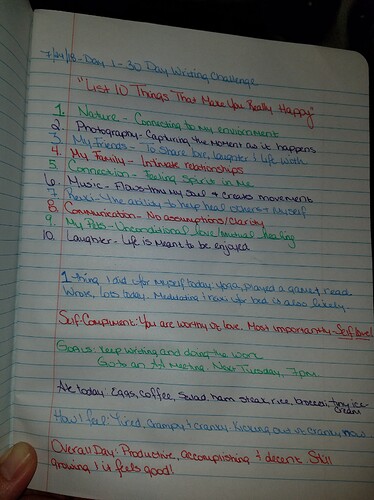 7/24/18 - Day 1 - 30 Day Writing Challenge
"List 10 Things That Make You Really Happy"
1. Nature - Connecting to my enviornment
2. Photography - Capturing the moment as it happens
3. My Friends - To share love, laughter & life with
4. My Family - Intimate relationships
5. Connection - Feeling spirit in me
6. Music - Flows thru my soul & creates movement
7. Reiki - The ability to help heal others & myself
8. Communication - No assumptions/clarity
9. My Pets - Unconditional love/mutual healing
10. Laughter - Life is meant to be enjoyed
1 thing I did for myself today yoga, played a game & read
Wrote, lots today. Meditating before bed is also likely.
Self-Compliment: You are worthy of love. Most importantly - Self love!
Goals: Keep writing and doing the work
Go to an Al meeting. Next Tuesday, 7pm
Ate today: Eggs, coffee, salad, ham steak, rice, broccoli, tiny ice-
cream
How I feel: Tired, crampy & cranky. Kicking out of cranky now.
Overall Day: Productive, accomplishing & decent. Still
growing & it feels good!